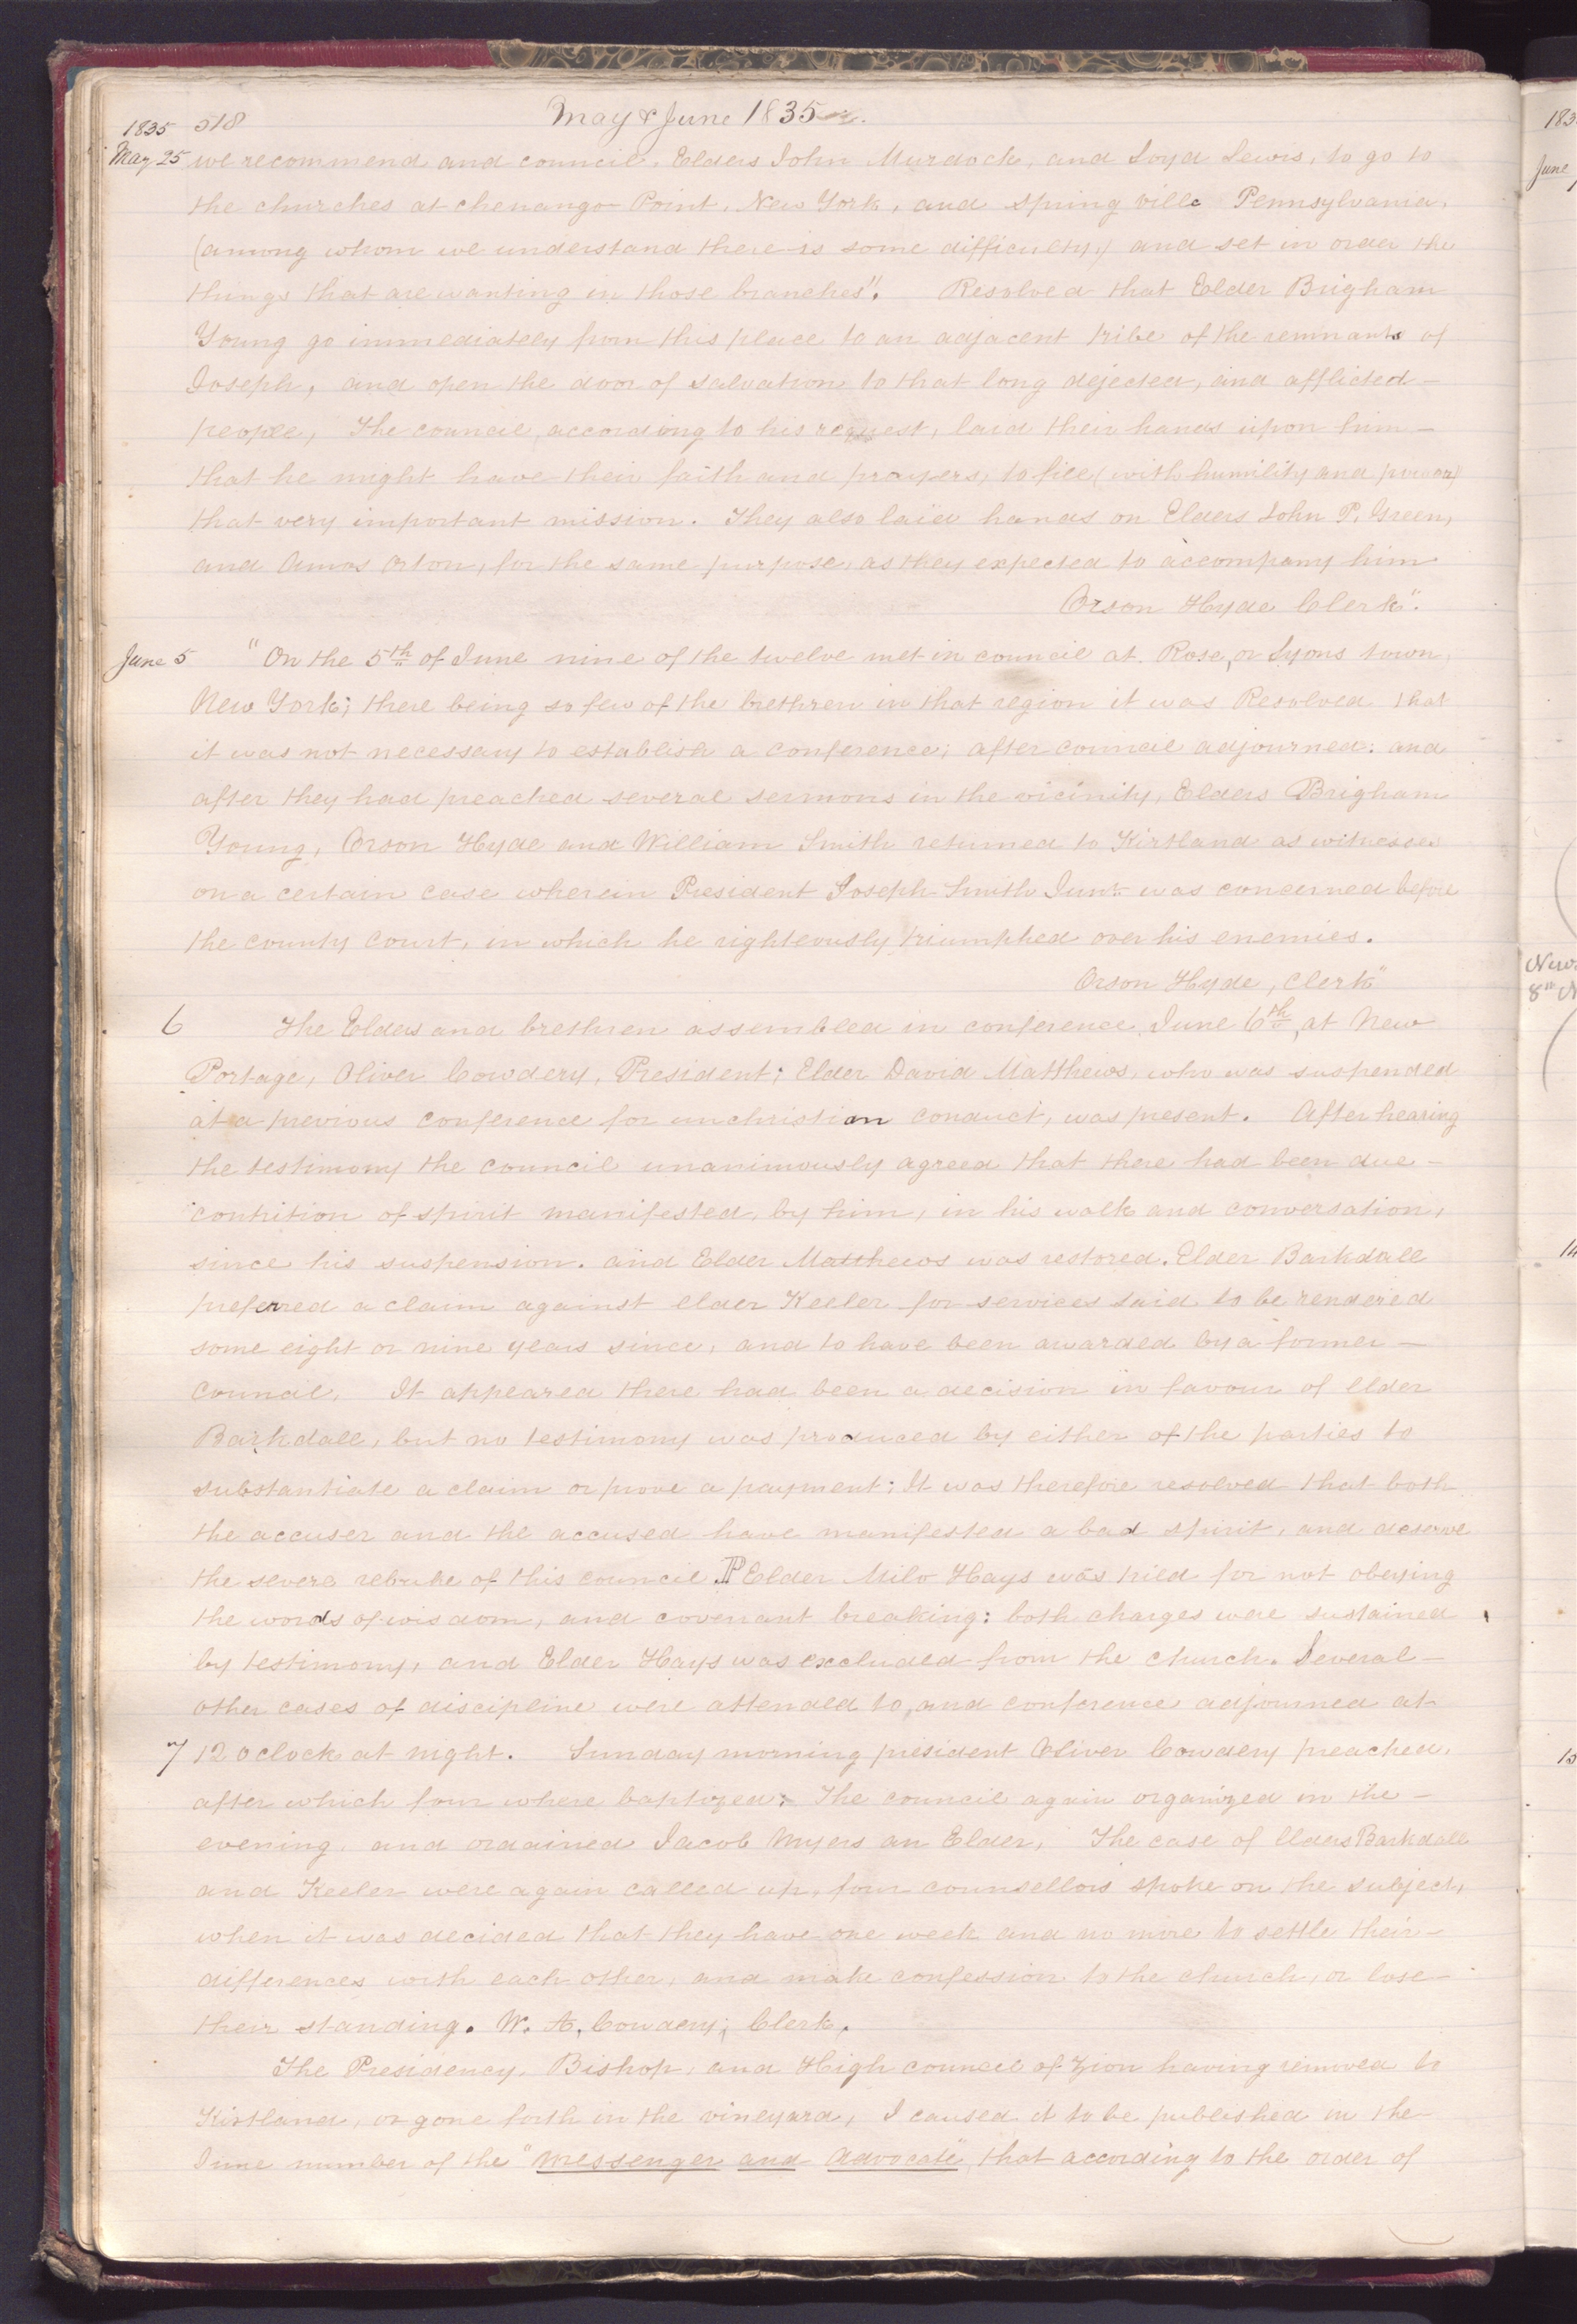 May & June 1835
1835 518
May 25 we recommend and council, Elders John Murdock, and Loyd Lewis, to go to
the churches at chenango Point, New York, and spring ville Pennsylvania,
(among whom we understand there is some difficulty,) and set in order the
things that are wanting in those branches". Resolved that Elder Brigham
Young go immediately from this place to an adjacent tribe of the remnants of
Joseph, and open the door of salvation to that long dejected, and afflicted—
people, The council, according to his request, laid their hands upon him—
that he might have their faith and prayers, to fill (with humility and power)
that very important mission. They also laid hands on Elders John P. Green,
and Amos Orton, for the same purpose, as they expected to accompany him
Orson Hyde Clerk".
June 5 "On the 5th of June nine of the twelve met in council at Rose, or Lyons town,
New York; there being so few of the brethren in that region it was Resolved that
it was not necessary to establish a conference; after council adjourned: and
after they had preached several sermons in the vicinity, Elders Brigham
Young, Orson Hyde and William Smith returned to Kirtland as witnesses
on a certain case wherein President Joseph Smith Junr was concerned before
the county court, in which he righteously triumphed over his enemies.
Orson Hyde, Clerk"
6 The Elders and brethren assembled in conference, June 6th, at New
Portage, Oliver Cowdery, President; Elder David Matthews, who was suspended
at a previous conference for unchristian conduct, was present. After hearing
the testimony the council unanimously agreed that there had been due—
contrition of spirit manifested, by him, in his walk and conversation,
since his suspension. and Elder Matthews was restored. Elder Barkdall
preferred a claim against elder Keeler for services said to be rendered
some eight or nine years since, and to have been awarded by a former—
council, It appeared there had been a decision in favour of Elder
Barkdall, but no testimony was produced by either of the parties to
substantiate a claim or prove a payment; It was therefore resolved that both
the accuser and the accused have manifested a bad spirit, and deserve
the severe rebuke of this council. ¶ Elder Milo Hays was tried for not obeying
the words of wisdom, and covenant breaking: both charges were sustained
by testimony, and Elder Hays was excluded from the church. Several—
other cases of discipline were attended to, and conference adjourned at
7 12 oclock at night. Sunday morning president Oliver Cowdery preached,
after which four where baptized; The council again organized in the—
evening, and ordained Jacob Myers an Elder, The case of Elders Barkdall
and Keeler were again called up, four counsellors spoke on the subject,
when it was decided that they have one week and no more to settle their—
differences with each other, and make confession to the church, or lose—
their standing. W. A. Cowdery; Clerk,
The Presidency, Bishop, and High council of Zion having removed to
Kirtland, or gone forth in the vineyard, I caused it to be published in the
June number of the "Messenger and Advocate" that according to the order of
183
June
New
8th N
14
15